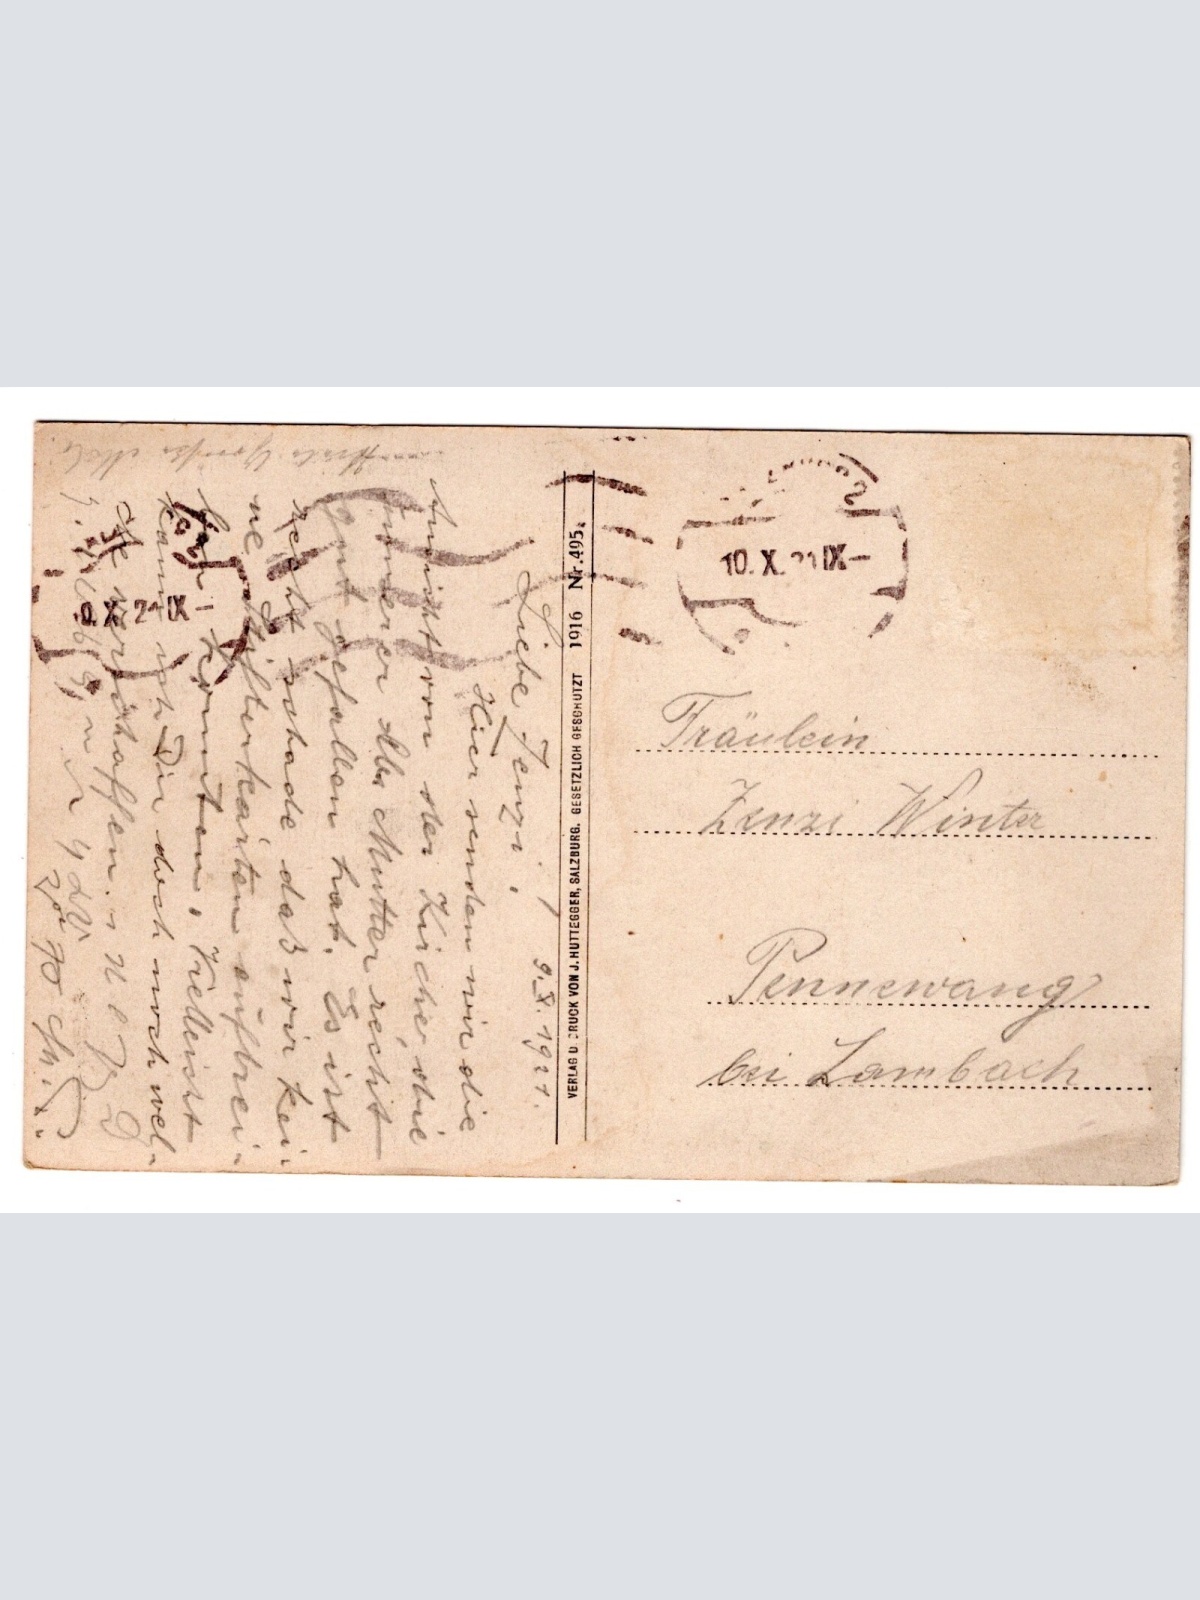 9.X.1921.
Liebe Zenzi!
Hier senden wir die
Ansicht von der Kirche die
immer der Mutter recht
gut gefallen hat. Es ist
recht schade daß wir kei-
ne Stifterkarten auftrei-
ben konnten. Vielleicht
kann ich Dir doch noch wel-
che verschaffen.
VERLAG U. DRUCK VON J. HUTTEGGER, SALZBURG. GESETZLICH GESCHÜTZT 1916 Nr. 495.
10. X. 21 IX–
X 21 IX–
Fräulein
Zenzi Winter
Pennewang
bei Lambach